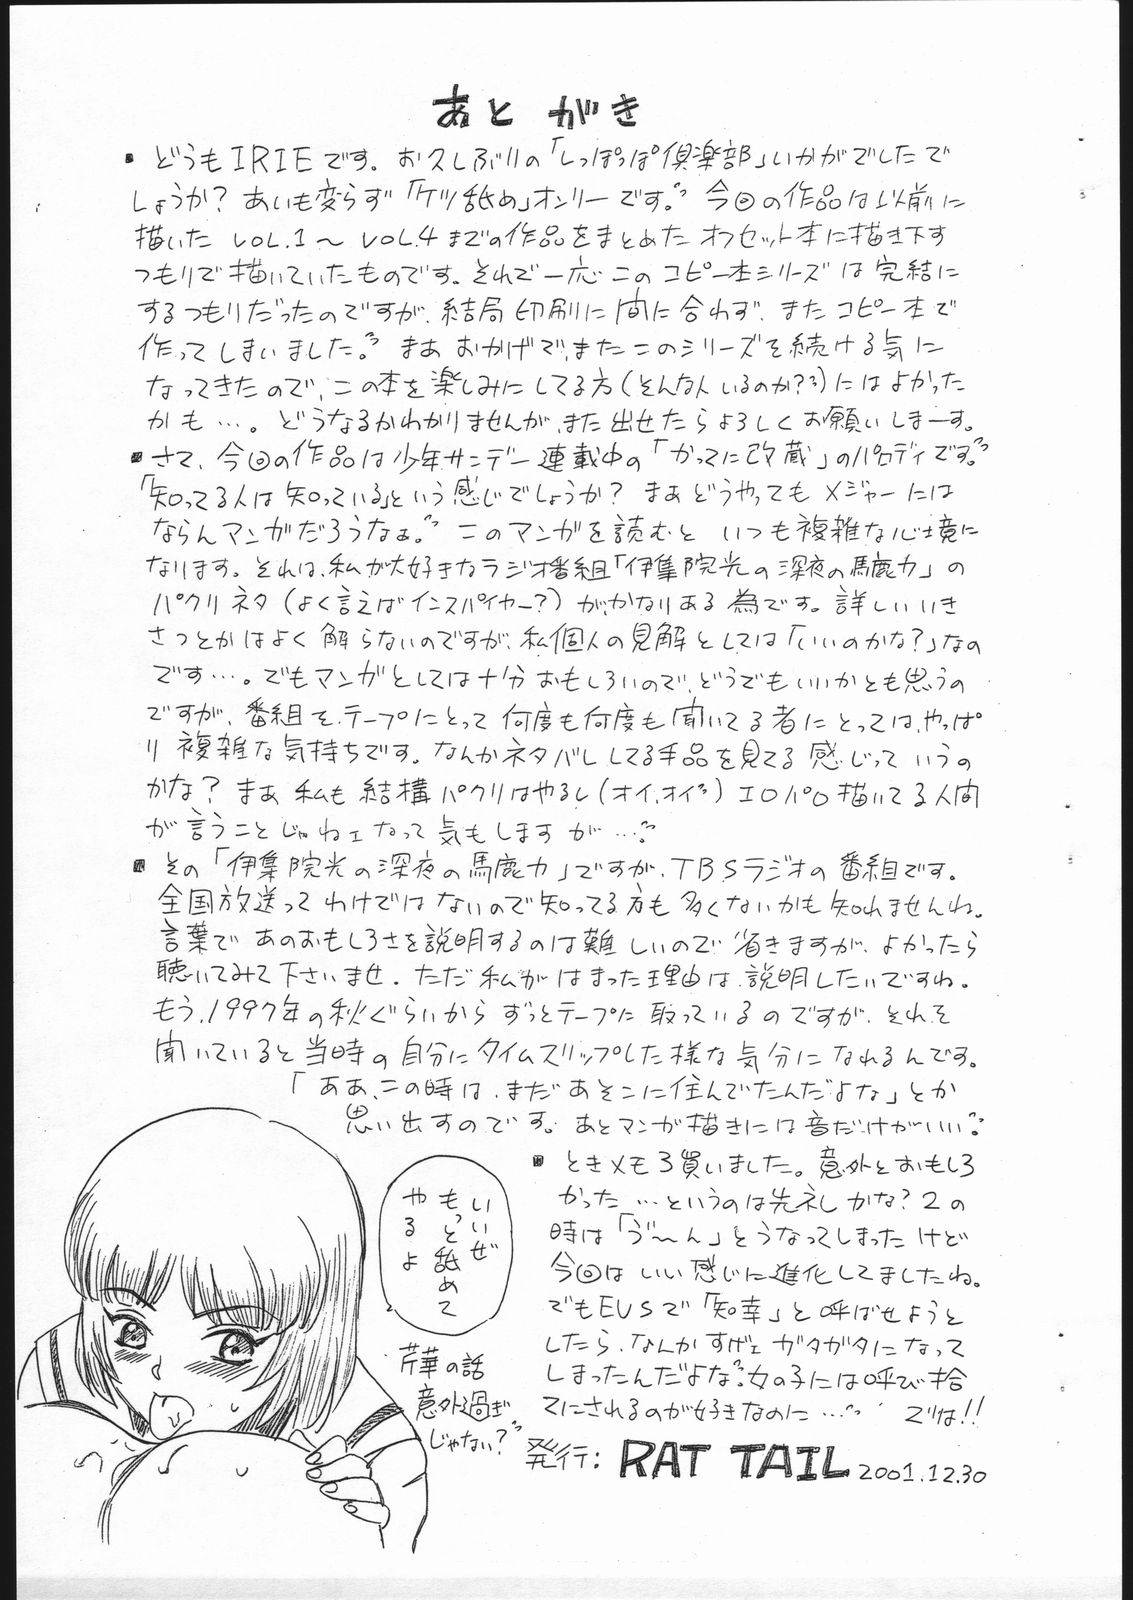 あとがき
▪ どうもIRIEです。お久しぶりの「しっぽっぽ倶楽部」いかがでしたで
しょうか？あいも変らず「ケツ舐め」オンリーです。今回の作品は以前に
描いた VOL.1〜VOL.4までの作品をまとめたオフセット本に描き下す
つもりで描いていたものです。それで一応このコピー本シリーズは完結に
するつもりだったのですが、結局印刷に間に合わず、またコピー本で
作ってしまいました。まあおかげで、またこのシリーズを続ける気に
なってきたので、この本を楽しみにしてる方(そんな人いるのか？)にはよかった
かも…。どうなるかわかりませんが、また出せたらよろしくお願いしまーす。
▪ さて、今回の作品は少年サンデー連載中の「かってに改蔵」のパロディです。
「知ってる人は知っている」という感じでしょうか？まあどうやってもメジャーには
ならんマンガだろうなぁ。このマンガを読むといつも複雑な心境に
なります。それは、私が大好きなラジオ番組「伊集院光の深夜の馬鹿力」の
パクリネタ(よく言えばインスパイヤー？)が、かなりある為です。詳しいいき
さつとかはよく解らないのですが、私個人の見解としては「いいのかな？」なの
です…。でもマンガとしては十分おもしろいので、どうでもいいかとも思うの
ですが、番組を、テープにとって何度も何度も聞いてる者にとっては、やっぱ
り複雑な気持ちです。なんかネタバレしてる手品を見てる感じっていうの
かな？まあ私も結構パクリはやるし(オイ、オイ)エロパロ描いてる人間
が言うことじゃねェなって気もしますが…
▪ その「伊集院光の深夜の馬鹿力」ですが、TBSラジオの番組です。
全国放送ってわけではないので知ってる方も多くないかも知れませんね。
言葉であのおもしろさを説明するのは難しいので省きますが、よかったら
聴いてみて下さいませ。ただ私がはまった理由は、説明したいですね。
もう、1997年の秋ぐらいからずっとテープに取っているのですが、それを
聞いていると当時の自分にタイムスリップした様な気分になれるんです。
「ああ、この時は、まだあそこに住んでたんだよな」とか
思い出すのです。あとマンガ描きには音だけがいい。
▪ ときメモ3買いました。意外とおもしろ
かった…というのは失礼かな？2の
時は「う゛〜ん」とうなってしまったけど
今回はいい感じに進化してましたね。
でもEVSで「知幸」と呼ばせようと
したら、なんかすげェガタガタになって
しまったんだよな。女の子には呼び捨
てにされるのが好きなのに…　でわ!!
いいぜ
もっと舐めて
やるよ
芹華の話
意外過ぎ
じゃない？
発行：RAT TAIL 2001.12.30